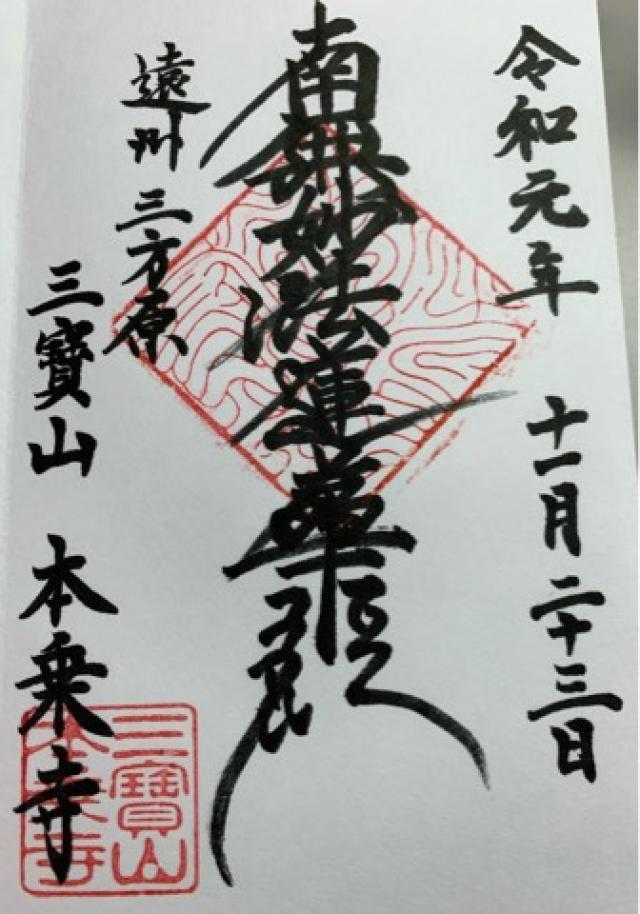 令和元年 十一月二十三日
南無妙法蓮華経
遠州三方原
三寶山 本乗寺
三寶山
本乗寺